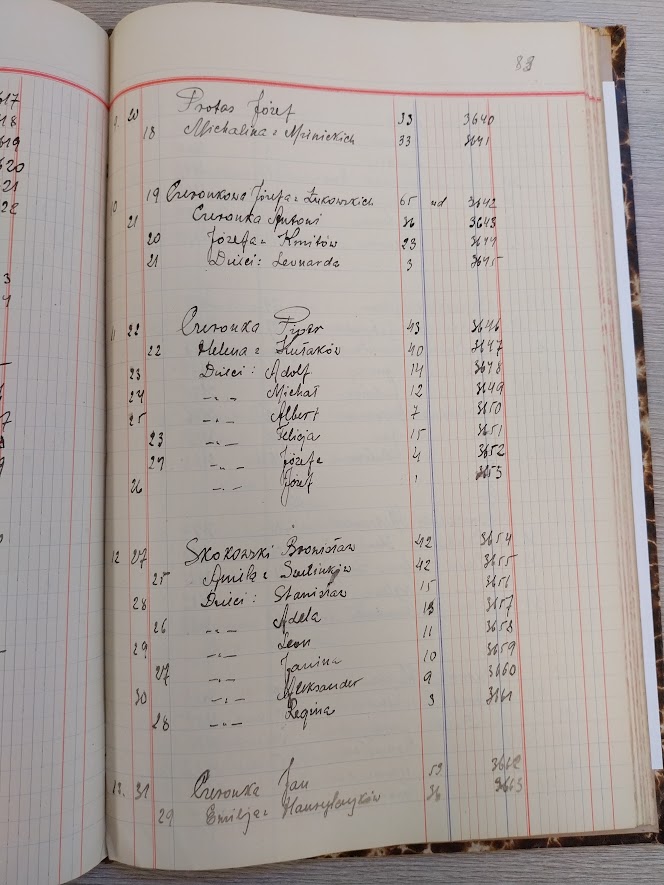 83
617
618
619
620
21
22
3
4
9. 20 Protas Józef 33 3640
18 Michalina z Mżinickich 33 3641
10 19 Czeronkowa Józefa z Żukowskich 65 wd 3642
21 Czeronka Antoni 36 3643
20 Józefa z Kmitów 23 3644
21 Dzieci: Leonarda 3 3645
11 22 Czeronka Piotr 43 3646
22 Helena z Kułaków 40 3647
23 Dzieci: Adolf 14 3648
24 -"- Michał 12 3649
25 -"- Albert 7 3650
23 -"- Felicja 15 3651
24 -"- Józefa 4 3652
26 -"- Józef 1 3653
12 27 Skokowski Bronisław 42 3654
25 Aniela z 42 3655
28 Dzieci: Stanisław 15 3656
26 -"- Adela 13 3657
29 -"- Leon 11 3658
27 -"- Janina 10 3659
30 -"- Aleksander 9 3660
28 -"- Regina 3 3661
13. 31 Czeronka Jan 53 3662
29 Emilja z 36 3663